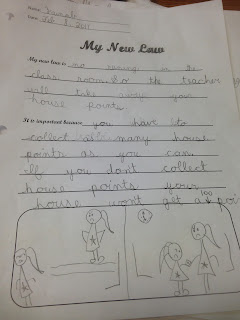 Name:
Date: Feb 8, 2011
My New Law
My new law is no running in the
class room. Or the teacher
will take away your
house points.
It is important because you have to
collect as many house
points as you can.
If you dont collect
house points your
house won't get a 100 poi